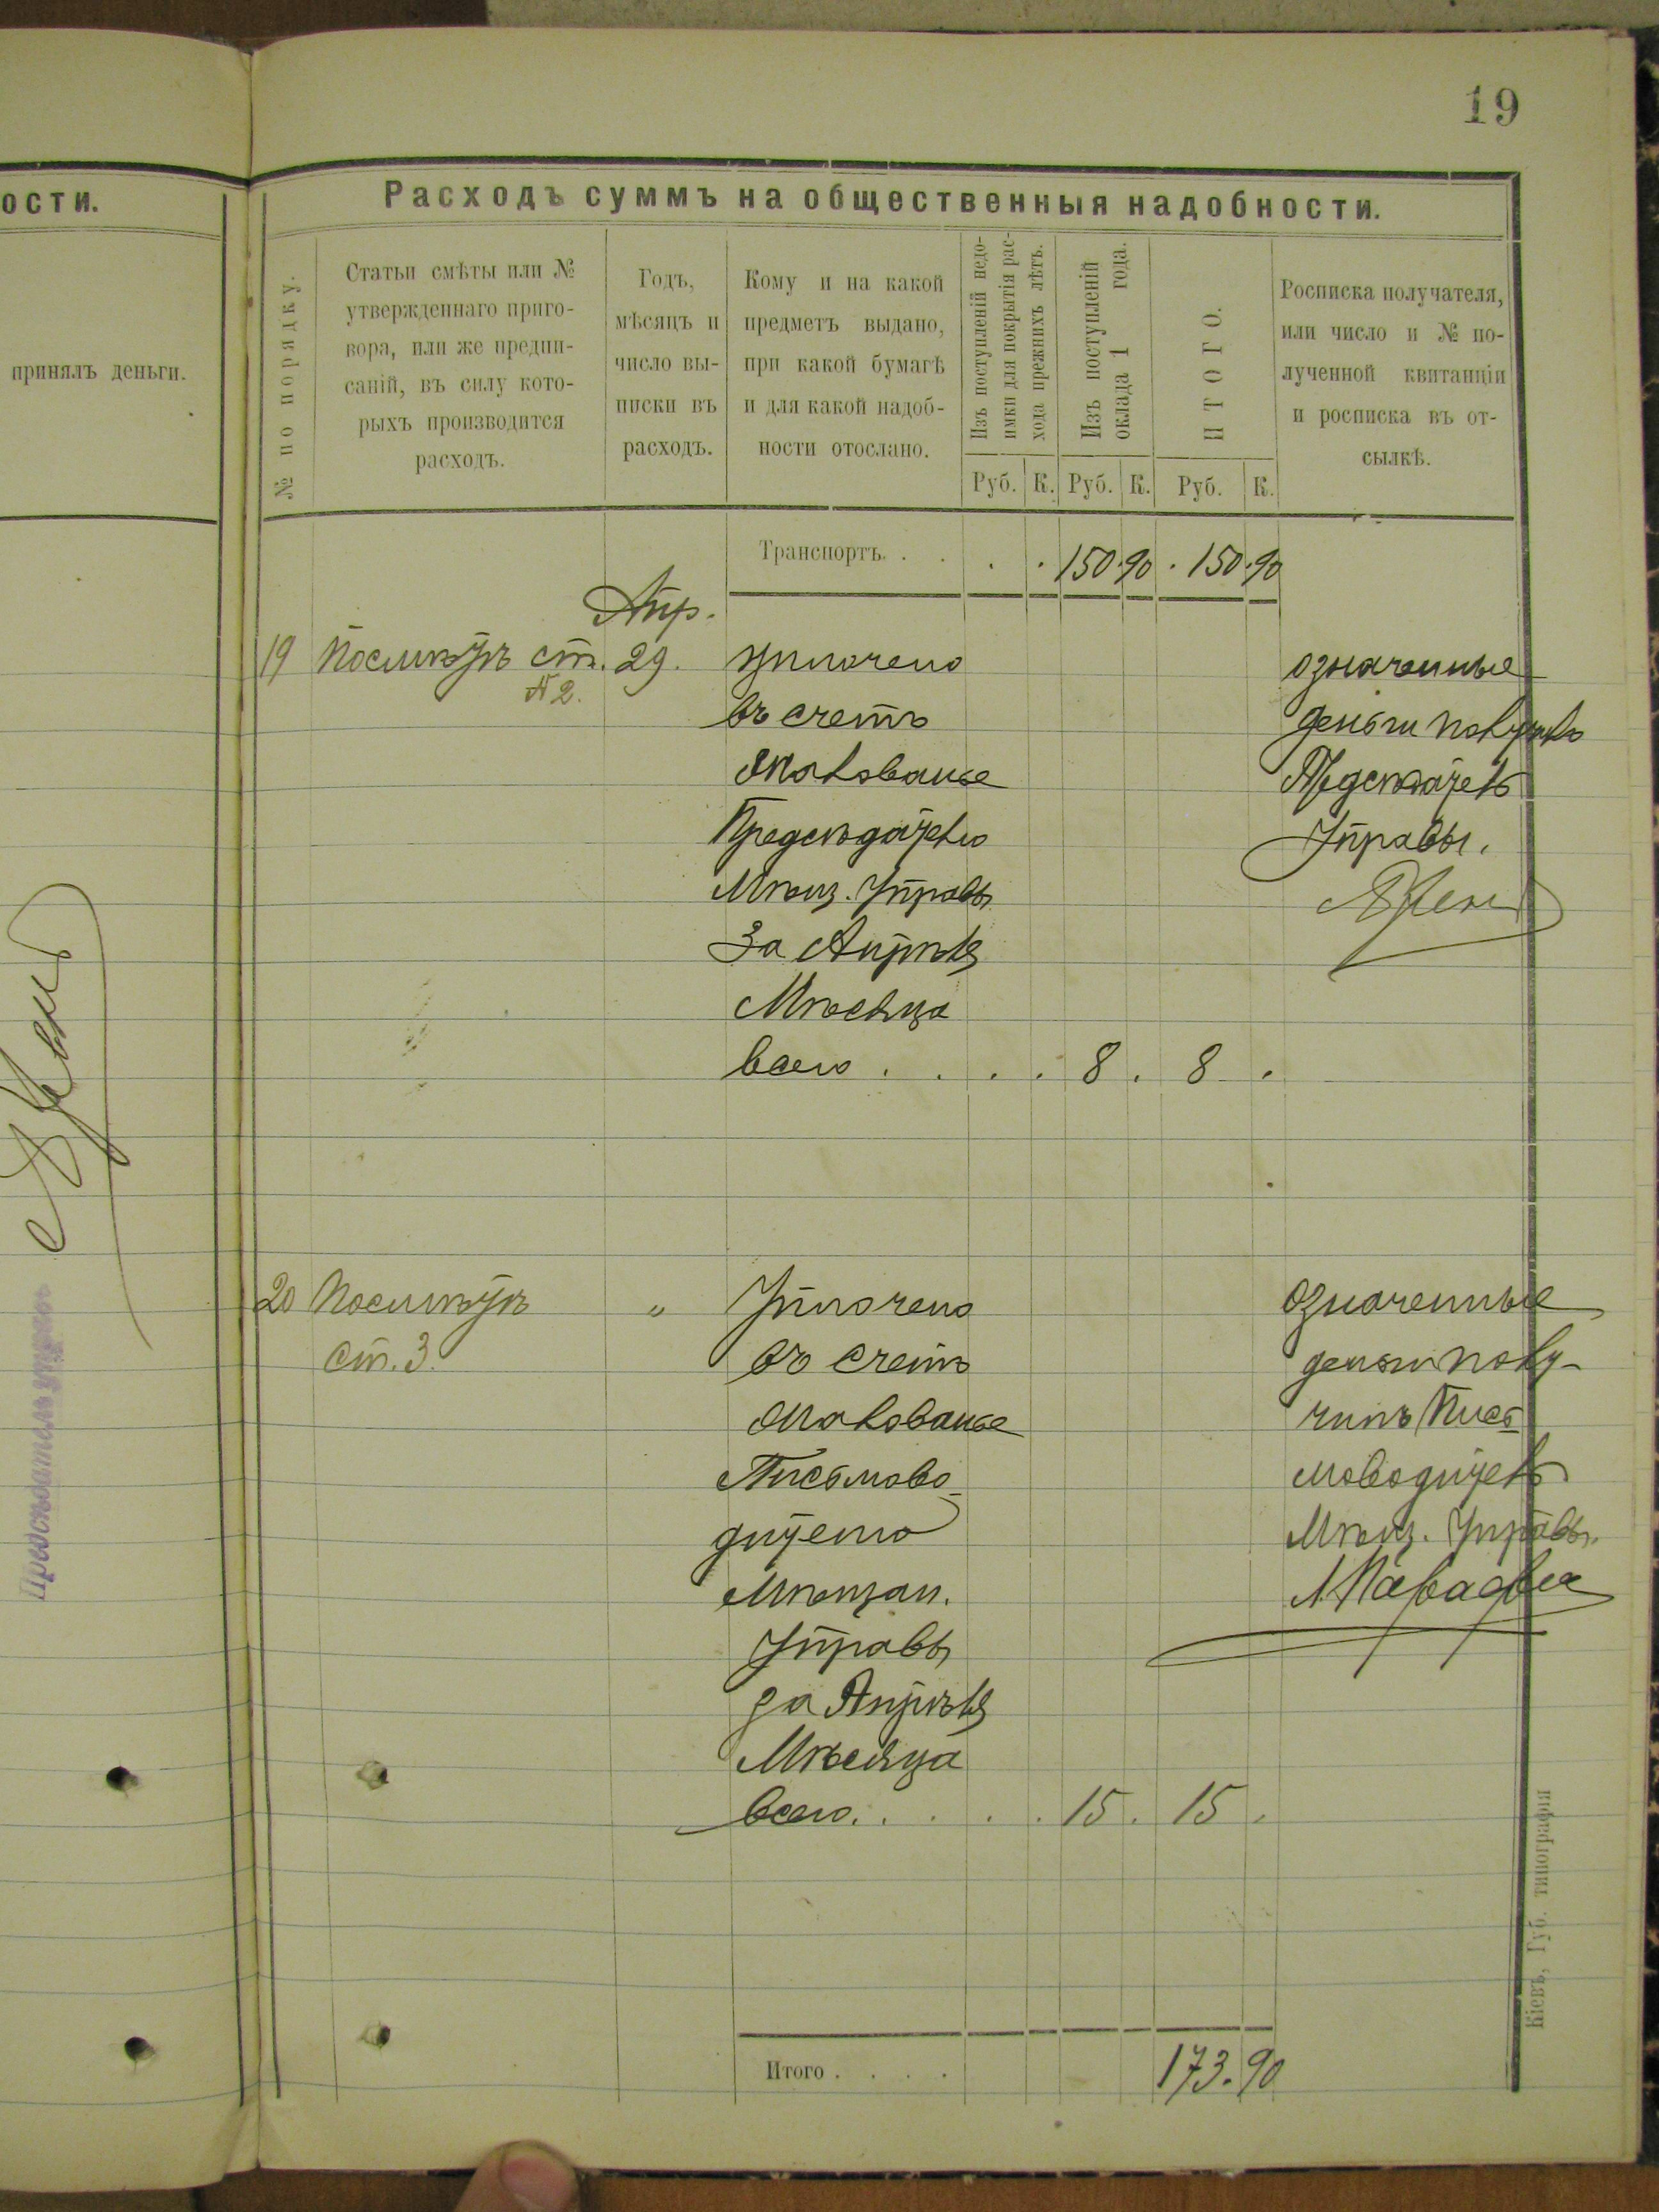 19
ости.
принялъ деньги.
Расходъ суммъ на общественныя надобности.
№ по порядку.
Статьи смѣты или №
утвержденнаго приго-
вора, или же предпи-
саній, въ силу кото-
рыхъ производится
расходъ.
Годъ,
мѣсяцъ и
число вы-
писки въ
расходъ.
Кому и на какой
предметъ выдано,
при какой бумагѣ
и для какой надоб-
ности отослано.
Изъ поступленій недо-
имки для покрытія рас-
хода прежнихъ лѣтъ.
Изъ поступленій
оклада 1 года.
ИТОГО.
Росписка получателя,
или число и № по-
лученной квитанціи
и росписка въ от-
сылкѣ.
Руб. К. Руб. К. Руб. К.
Транспортъ. . . . . 150.90 . 150.90
Апр.
19 По смѣтѣ ст. 29. уплочено
№ 2.
въ счетъ
жалованье
Предсѣдателю
Мѣщ. Управы
За Апрѣль
Мѣсяца
всего . . . . 8 . 8 .
означенные
деньги получилъ
Предсѣдатель
Управы.
20 По смѣтѣ „ Уплочено
ст. 3.
въ счетъ
жалованье
Письмово-
дителю
Мѣщан.
Управы
за Апрѣль
Мѣсяца
всего. . . . . 15 . 15 .
означенные
деньги полу-
чилъ Пись
моводитель
Мѣщ. Управы.
Итого . . . . 173.90
Кіевъ, Губ. типографія